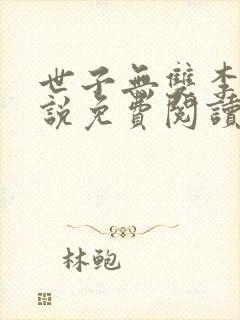 世子無雙李
說免費閱讀
林鲍